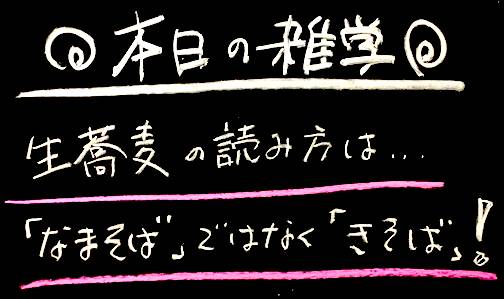 本日の雑学
生蕎麦の読み方は...
「なまそば」ではなく「きそば」!